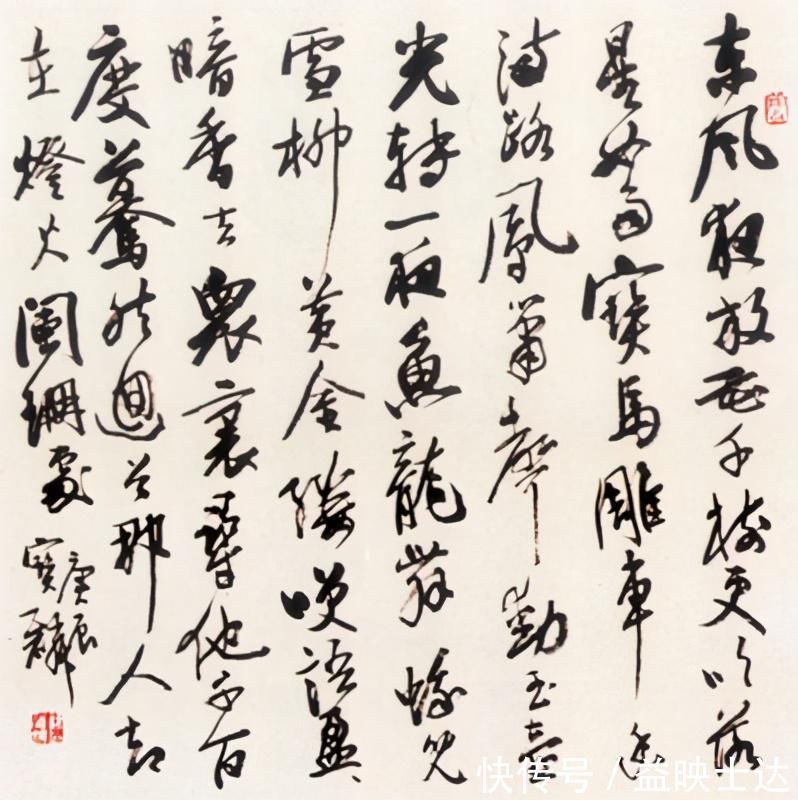 東風夜放花千樹更吹落
星如雨寶馬雕車香
滿路鳳簫聲動玉壺
光轉一夜魚龍舞蛾兒
雪柳黃金縷咲語盈
暗香去衆裏尋他千百
度驀然迴首那人却
在燈火闌珊處
庚辰
寶麟
快传号/益映士达